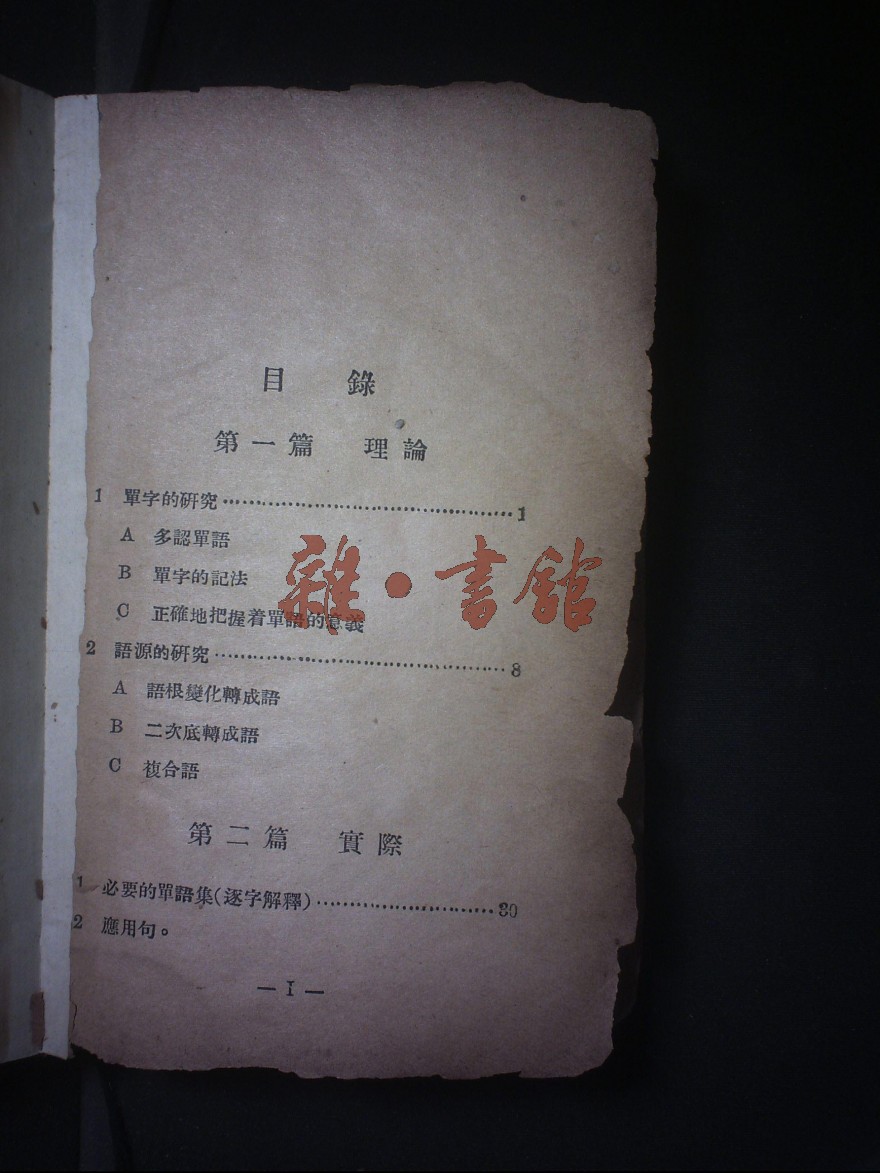 目錄
第一篇 理論
1 單字的研究 1
A 多認單語
B 單字的記法
C 正確地把握着單語的意義
雜·書舘
2 語源的研究 8
A 語根變化轉成語
B 二次底轉成語
C 複合語
第二篇 實際
1 必要的單語集(逐字解釋) 30
2 應用句。
— I —